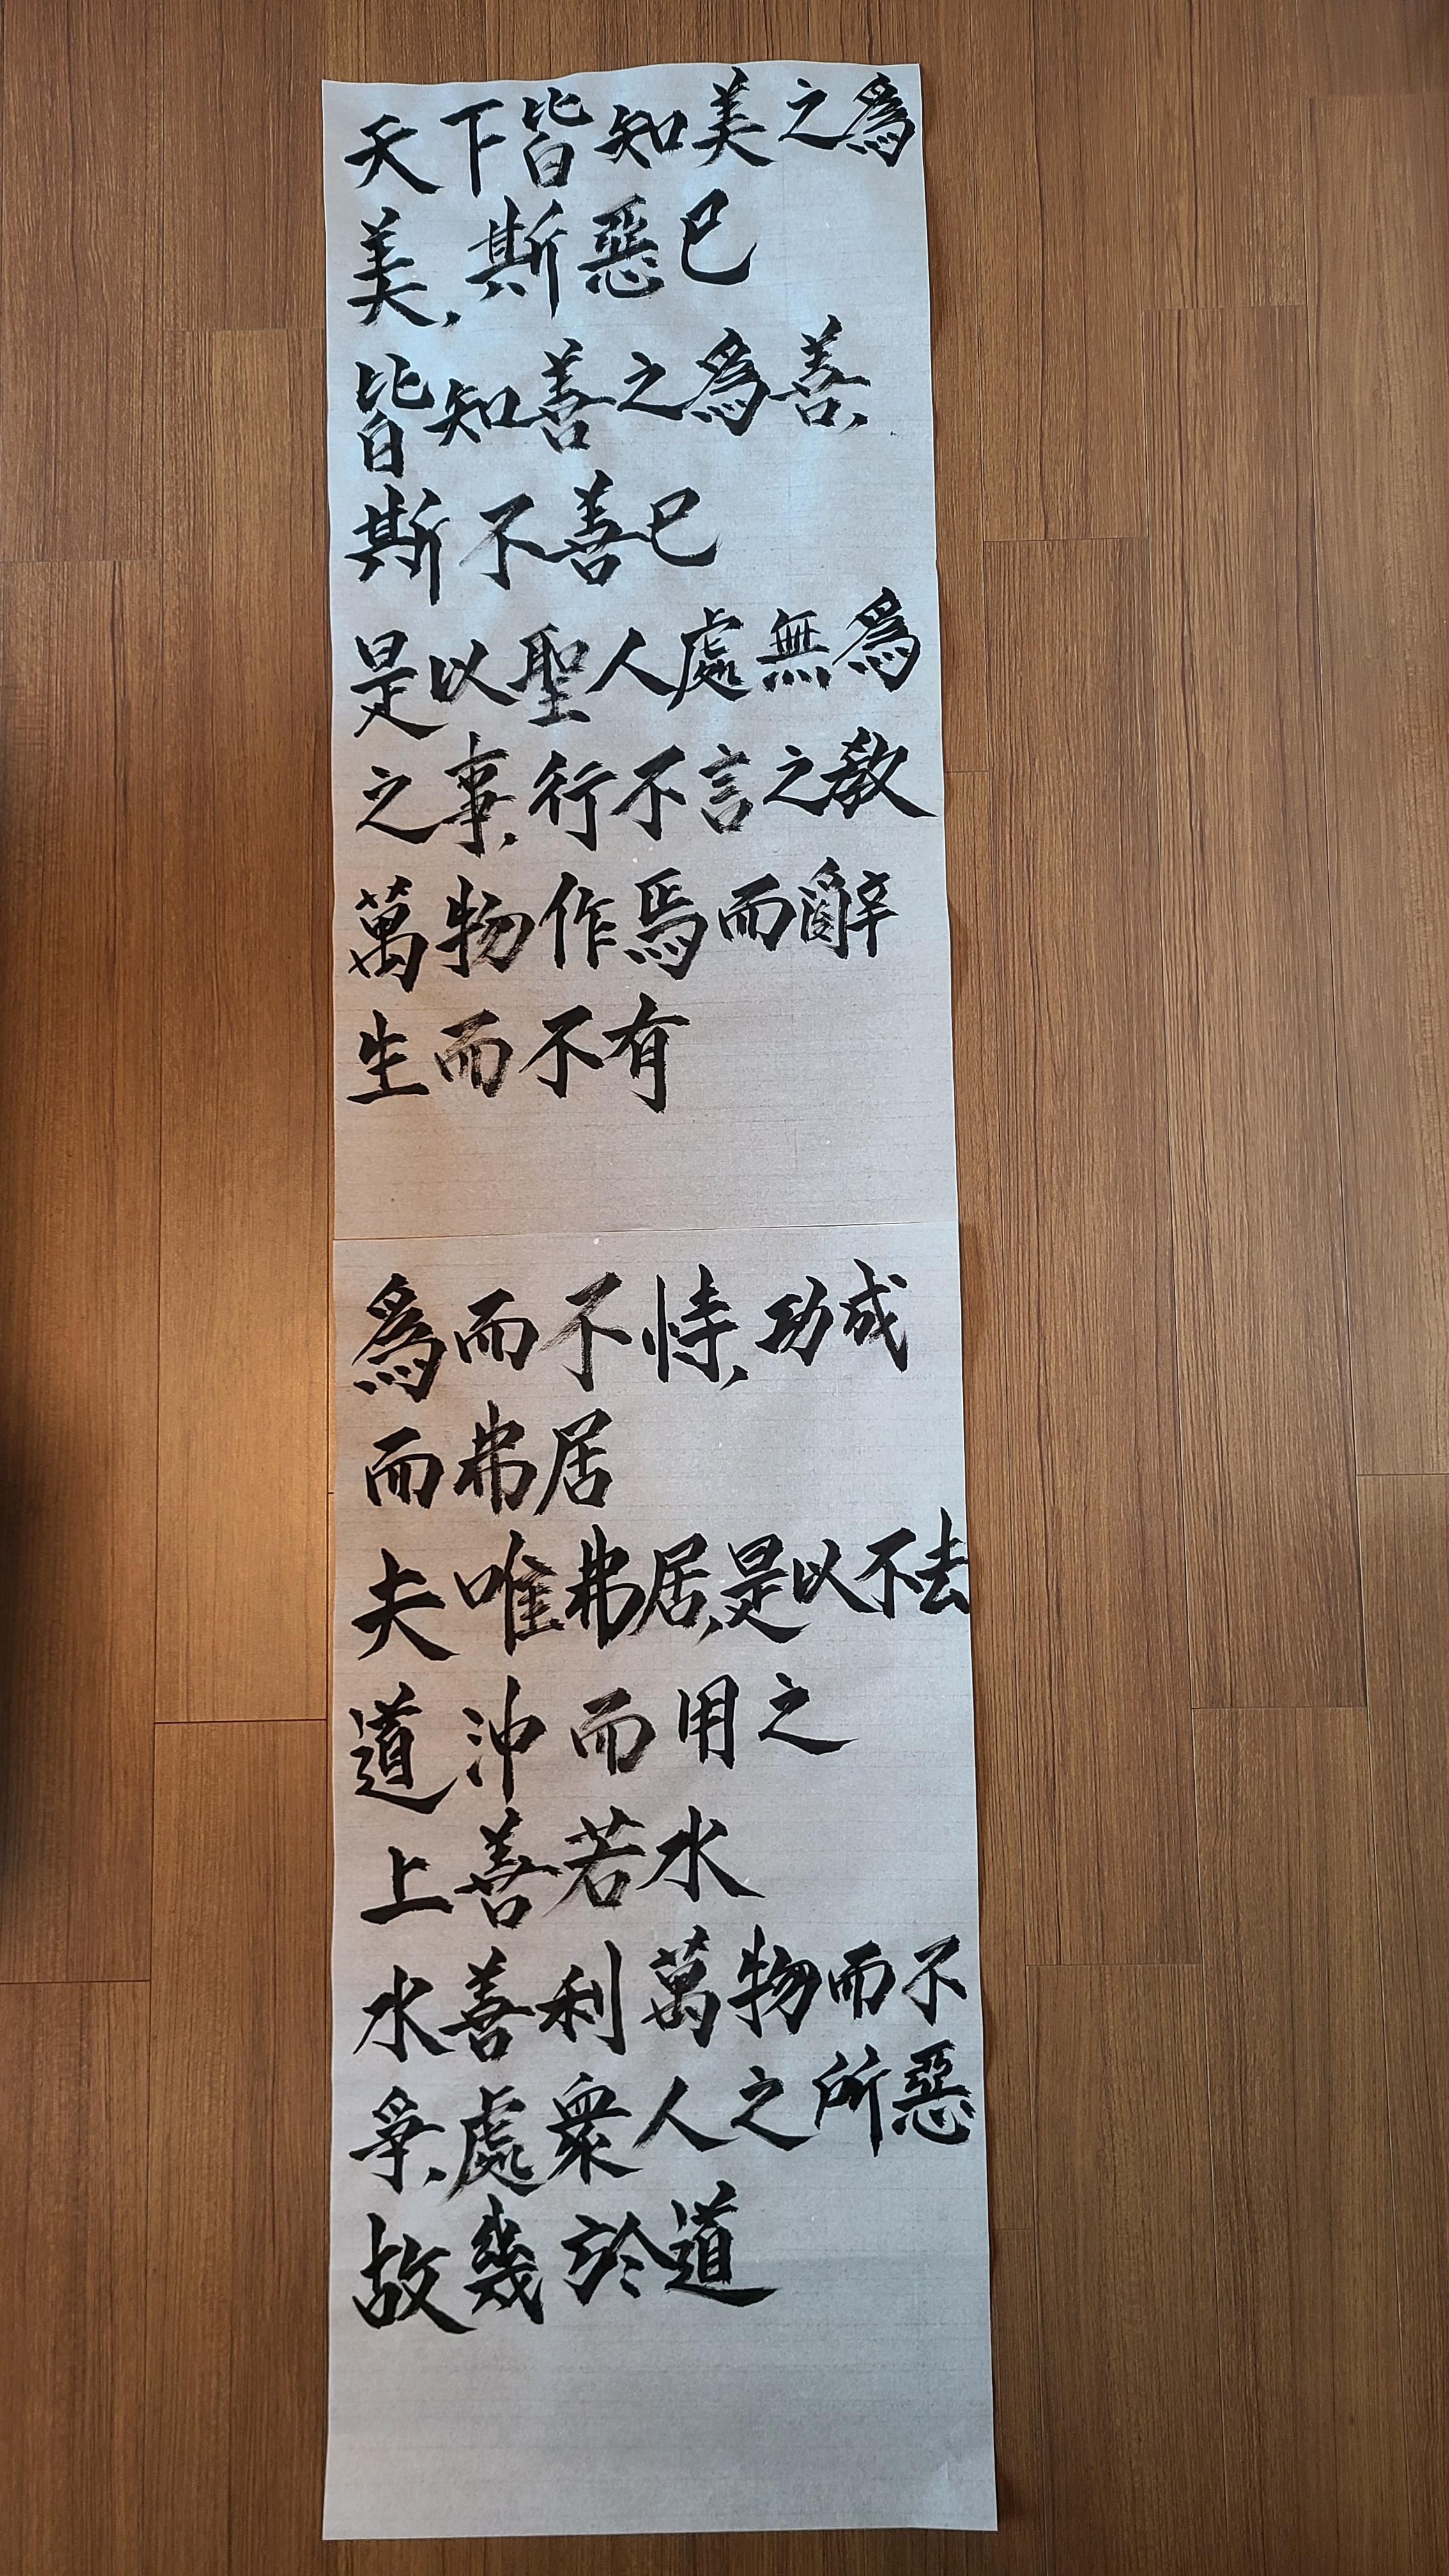 天下皆知美之爲
美,斯惡已
皆知善之爲善,
斯不善已
是以聖人處無爲
之事,行不言之敎
萬物作焉而辭
生而不有
爲而不恃,功成
而弗居
夫唯弗居,是以不去
道沖而用之
上善若水
水善利萬物而不
爭,處衆人之所惡
故幾於道